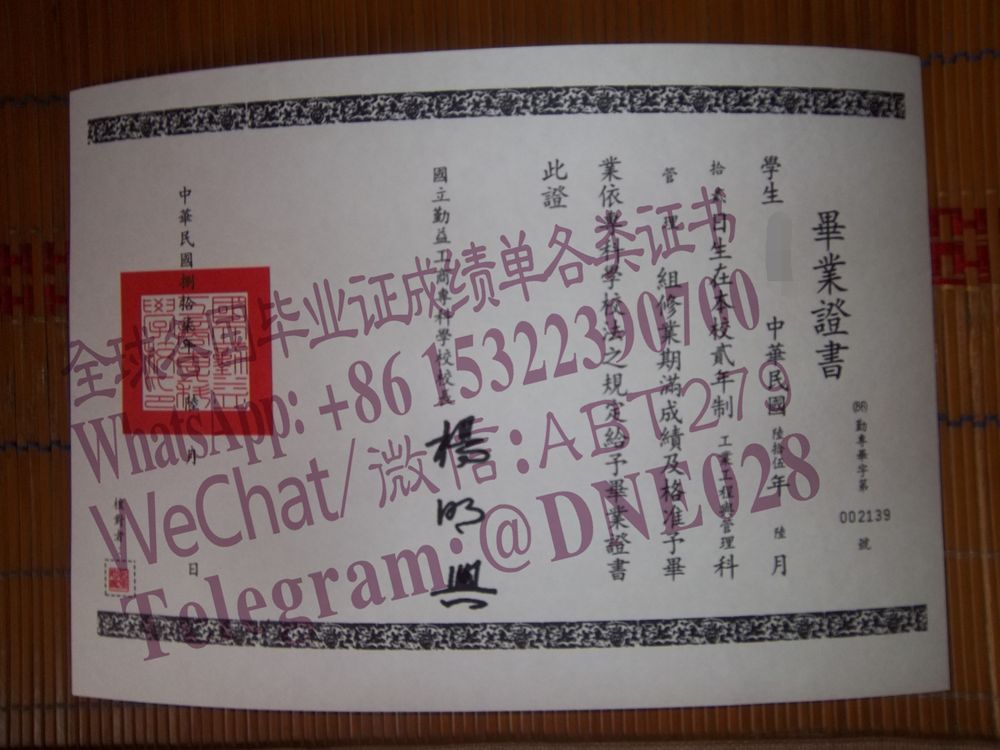 畢業證書
勤專畢字第 002139 號
學生 中華民國陸拾伍年陸月
拾叁日生在本校貳年制工業工程與管理科
管理組修業期滿成績及格准予畢
業依專科學校法之規定給予畢業證書
此證
國立勤益工商專科學校校長 楊明
中華民國捌拾柒年陸月 日
全球各国毕业证成绩单各类证书
WhatsApp: +86 15322390700
WeChat/微信:ABT279
Telegram:@DNE028